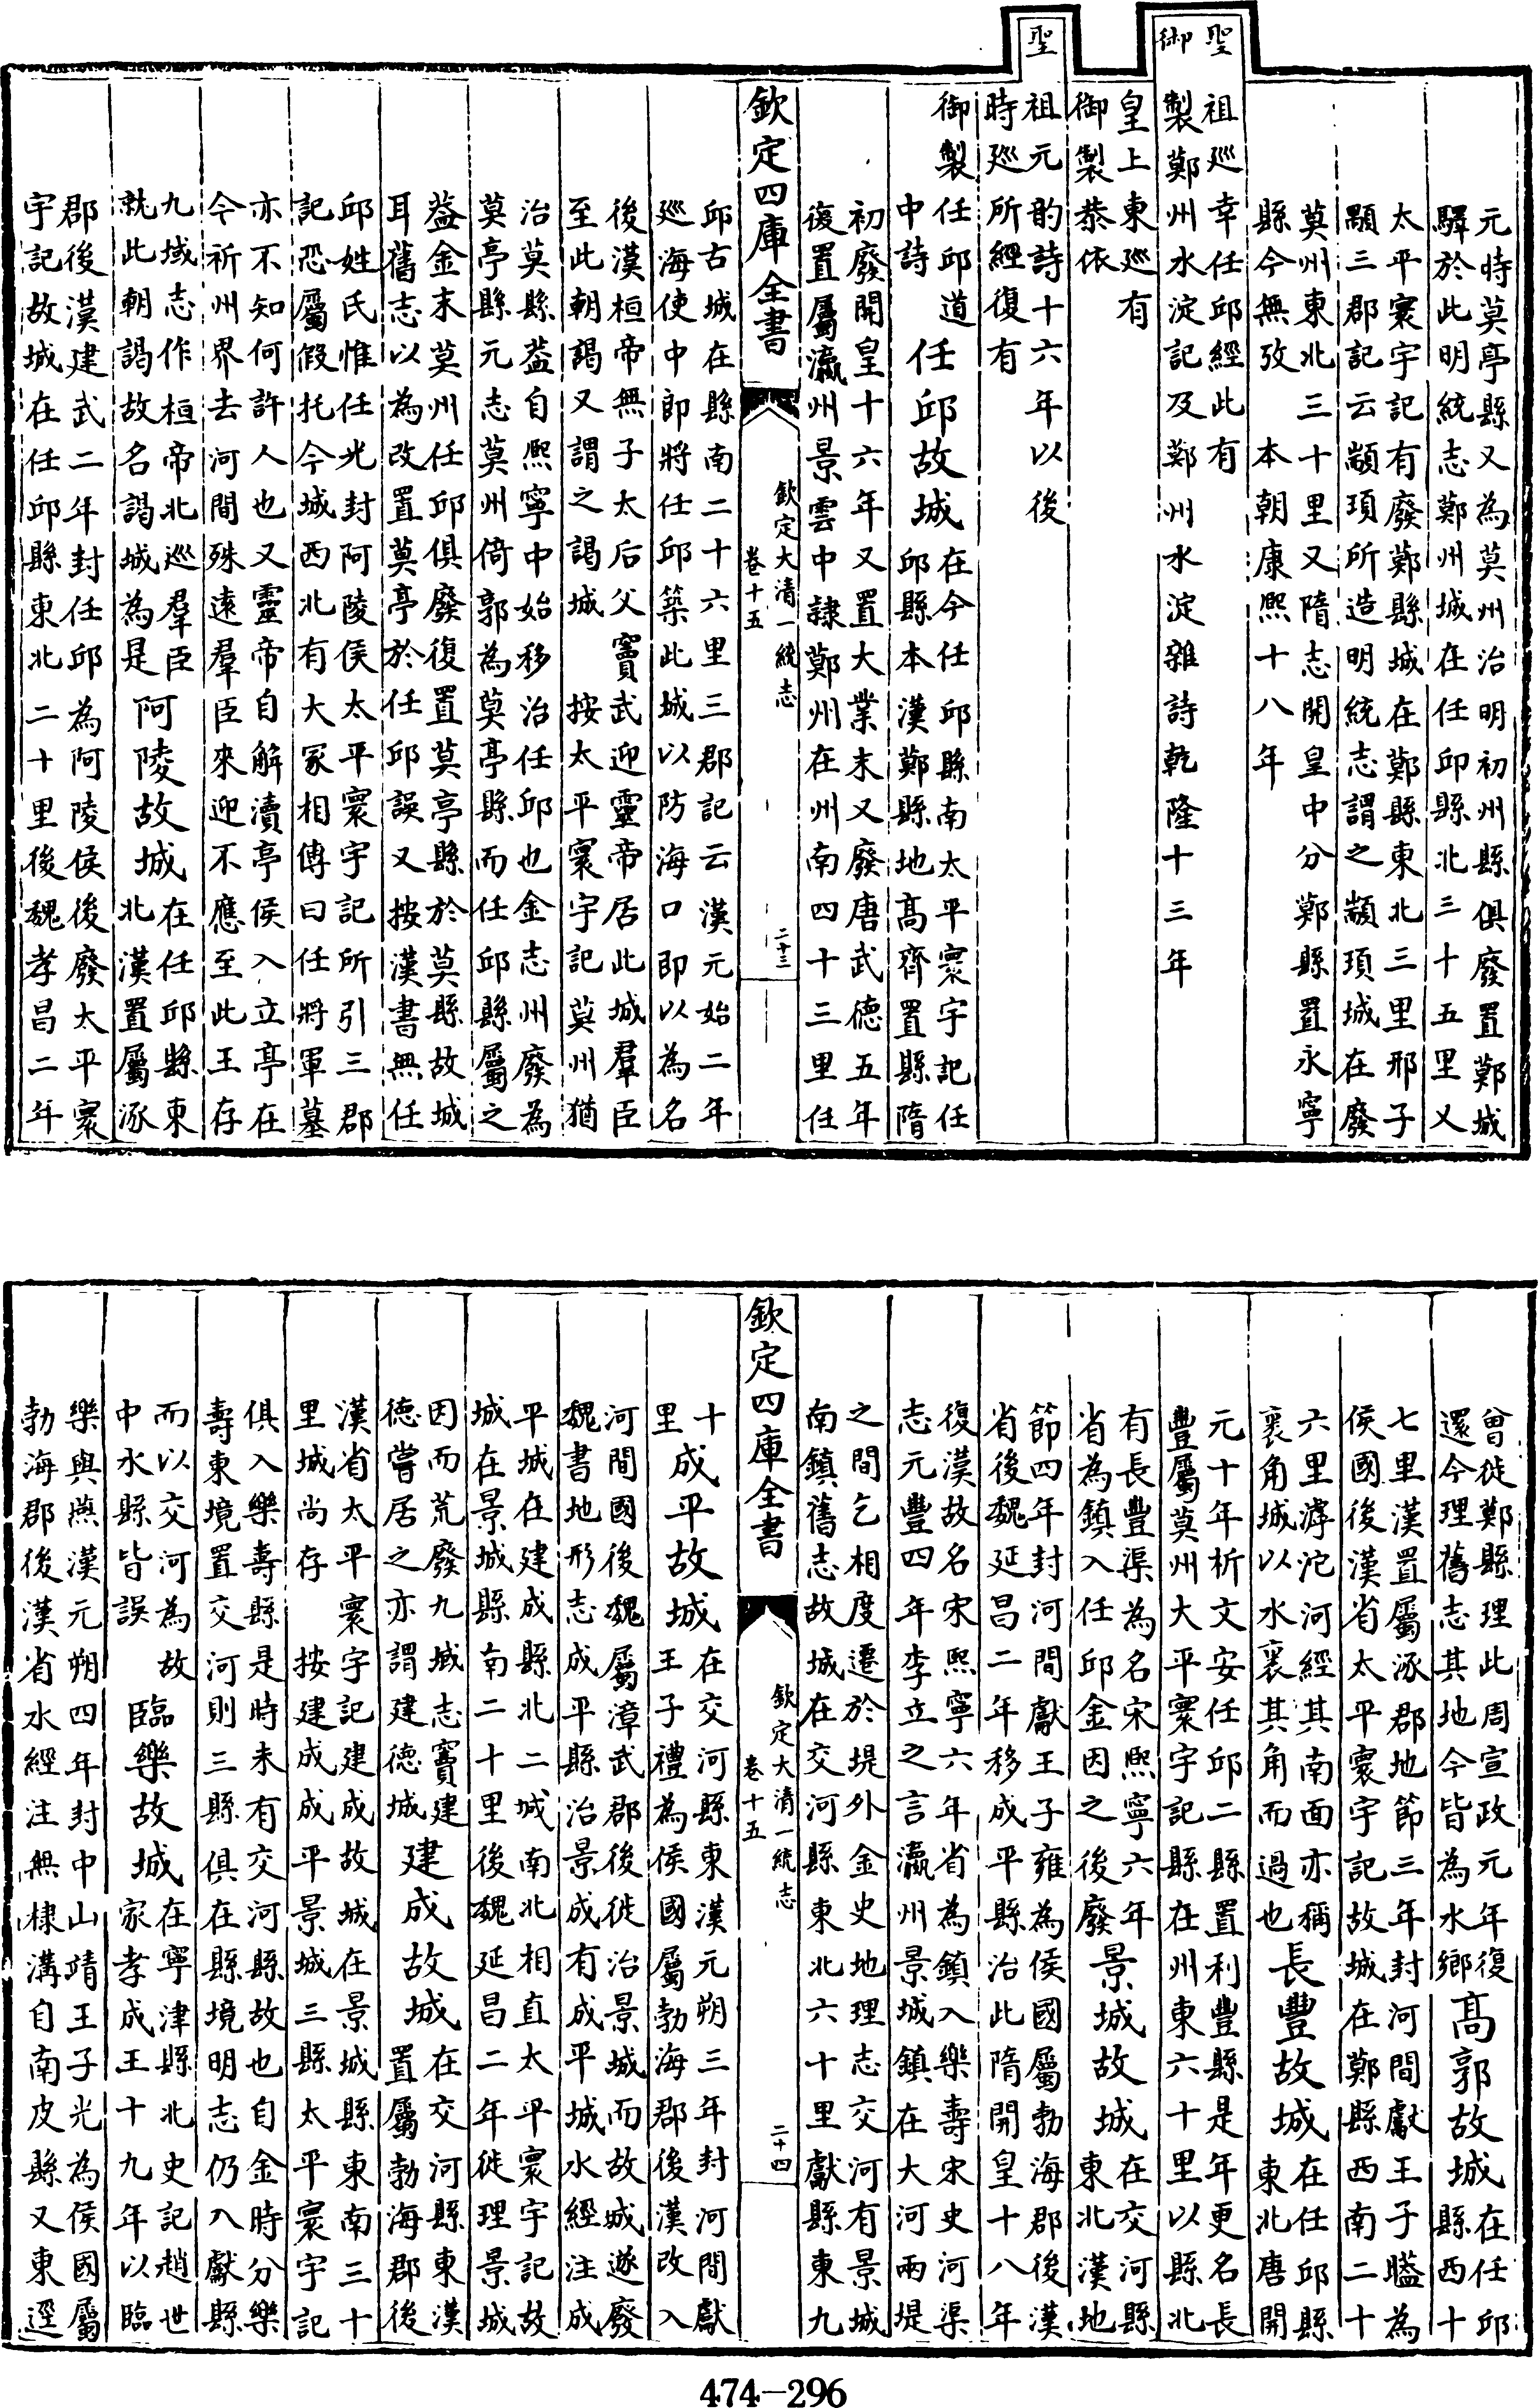 元時莫亭縣又為莫州治明初州縣俱廢置鄚城
驛於此明統志鄚州城在任邱縣北三十五里又
太平寰宇記有廢鄚縣城在鄚縣東北三里邢子
顒三郡記云顓頊所造明統志謂之顓頊城在廢
莫州東北三十里又隋志開皇中分鄚縣置永寧
縣今無攷 本朝康熙十八年
聖祖巡幸任邱經此有
御製鄚州水淀記及鄚州水淀雜詩乾隆十三年
皇上東巡有
御製恭依
聖祖元韵詩十六年以後
時巡所經復有
御製任邱道
中詩
任邱故城
在今任邱縣南太平寰宇記任
邱縣本漢鄚縣地高齊置縣隋
初廢開皇十六年又置大業末又廢唐武德五年
復置屬瀛州景雲中隸鄚州在州南四十三里任
欽定四庫全書
欽定大清一統志
卷十五
二十三
邱古城在縣南二十六里三郡記云漢元始二年
巡海使中郎將任邱築此城以防海口即以為名
後漢桓帝無子太后父竇武迎靈帝居此城羣臣
至此朝謁又謂之謁城 按太平寰宇記莫州猶
治莫縣葢自熙寧中始移治任邱也金志州廢為
莫亭縣元志莫州倚郭為莫亭縣而任邱縣屬之
葢金末莫州任邱俱廢復置莫亭縣於莫縣故城
耳舊志以為改置莫亭於任邱誤又按漢書無任
邱姓氏惟任光封阿陵侯太平寰宇記所引三郡
記恐屬假托今城西北有大冢相傳曰任將軍墓
亦不知何許人也又靈帝自解瀆亭侯入立亭在
今祈州界去河間殊遠羣臣來迎不應至此王存
九域志作桓帝北巡羣臣
就此朝謁故名謁城為是
阿陵故城
在任邱縣東
北漢置屬涿
郡後漢建武二年封任邱為阿陵侯後廢太平寰
宇記故城在任邱縣東北二十里後魏孝昌二年
曾徙鄚縣理此周宣政元年復
還今理舊志其地今皆為水鄉
高郭故城
在任邱
縣西十
七里漢置屬涿郡地節三年封河間獻王子瞌為
侯國後漢省太平寰宇記故城在鄚縣西南二十
六里滹沱河經其南面亦稱
裏角城以水裏其角而過也
長豐故城
在任邱縣
東北唐開
元十年析文安任邱二縣置利豐縣是年更名長
豐屬莫州大平寰宇記縣在州東六十里以縣北
有長豐渠為名宋熙寧六年
省為鎮入任邱金因之後廢
景城故城
在交河縣
東北漢地
節四年封河間獻王子雍為侯國屬勃海郡後漢
省後魏延昌二年移成平縣治此隋開皇十八年
復漢故名宋熙寧六年省為鎮入樂壽宋史河渠
志元豐四年李立之言瀛州景城鎮在大河兩堤
之間乞相度遷於堤外金史地理志交河有景城
南鎮舊志故城在交河縣東北六十里獻縣東九
欽定四庫全書
欽定大清一統志
卷十五
二十四
十
里
成平故城
在交河縣東漢元朔三年封河間獻
王子禮為侯國屬勃海郡後漢改入
河間國後魏屬漳武郡後徙治景城而故城遂廢
魏書地形志成平縣治景成有成平城水經注成
平城在建成縣北二城南北相直太平寰宇記故
城在景城縣南二十里後魏延昌二年徙理景城
因而荒廢九域志竇建
德嘗居之亦謂建德城
建成故城
在交河縣東漢
置屬勃海郡後
漢省太平寰宇記建成故城在景城縣東南三十
里城尚存 按建成成平景城三縣太平寰宇記
俱入樂壽縣是時未有交河縣故也自金時分樂
壽東境置交河則三縣俱在縣境明志仍入獻縣
而以交河為故
中水縣皆誤
臨樂故城
在寧津縣北史記趙世
家孝成王十九年以臨
樂與燕漢元朔四年封中山靖王子光為侯國屬
勃海郡後漢省水經注無棣溝自南皮縣又東逕
474—296